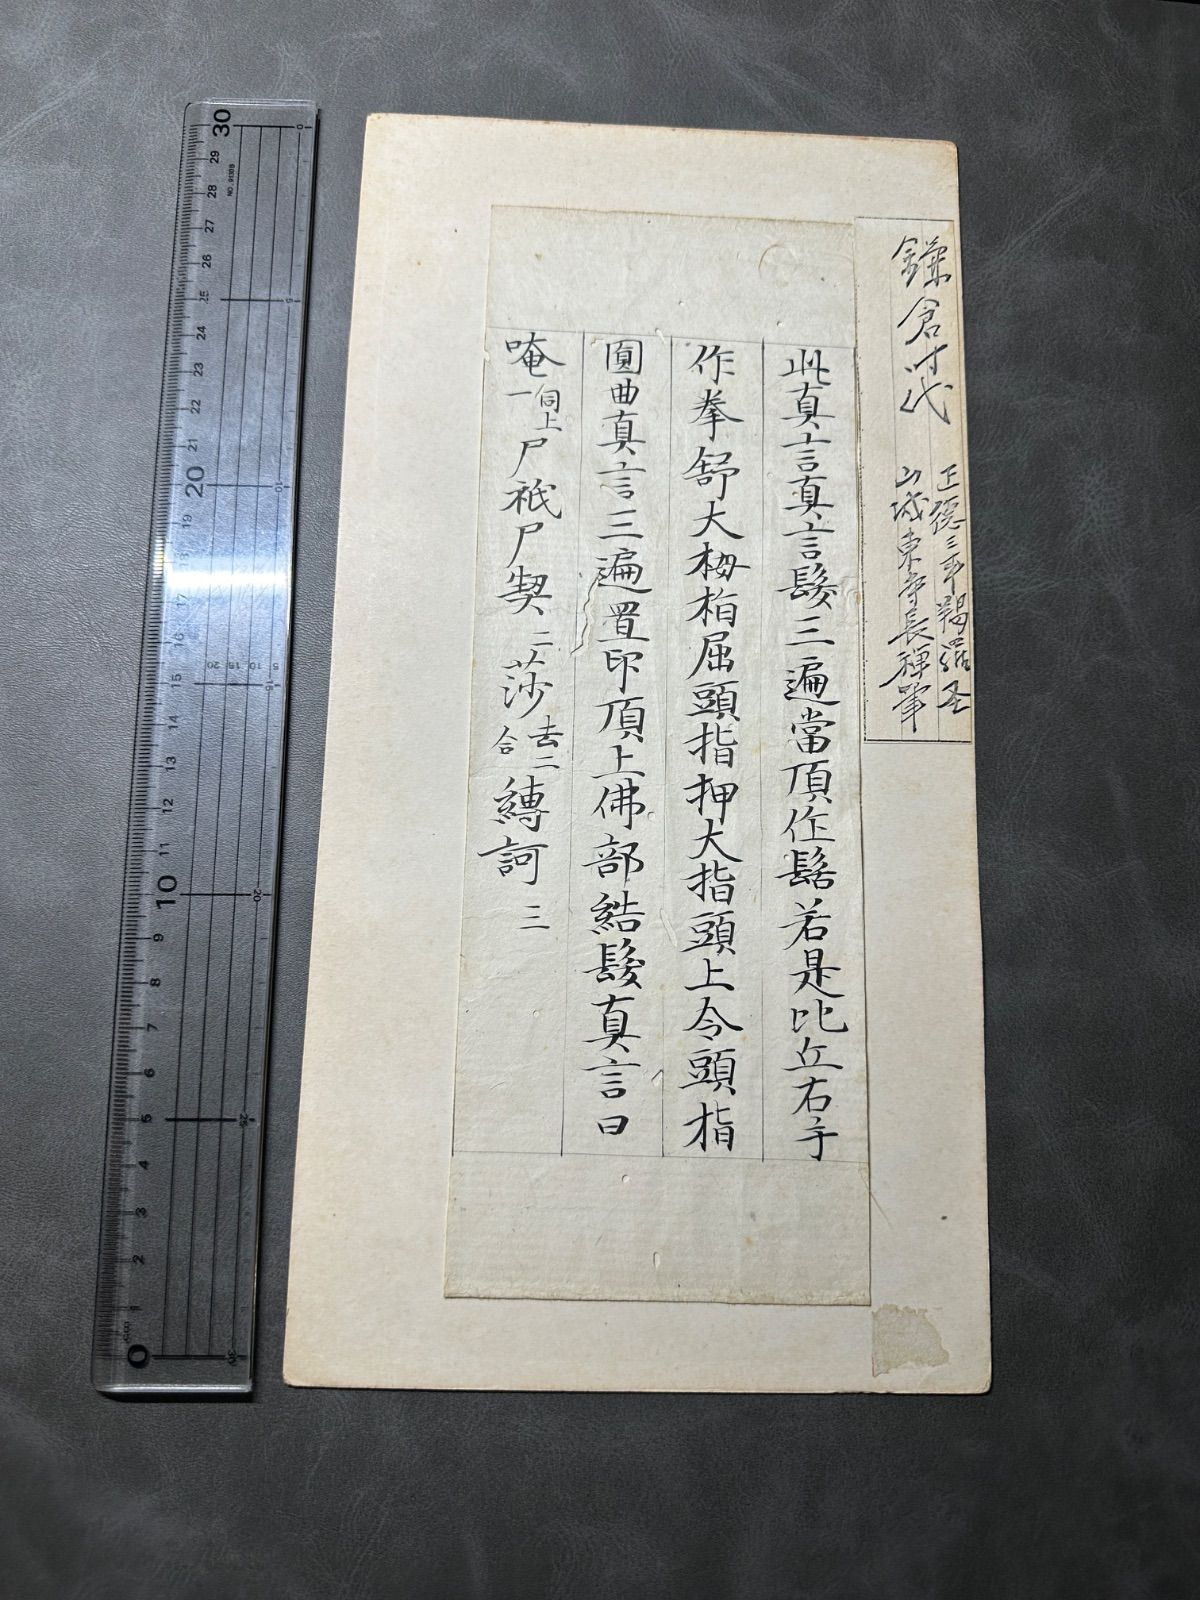 鎌倉时代
正德三年羯羅圣
山城東寺長禅筆
此真言真言髮三遍當頂作髻若是比丘右手
作拳舒大栂栢屈頭指押大指頭上令頭指
圓曲真言三遍置印頂上佛部結髮真言曰
唵一同上尸祇尸契二莎去二合縳訶三
30
29
28
27
26
25
24
23
22
21
20
19
17
16
15
14
13
12
11
10
9
8
7
6
5
4
3
2
1
0